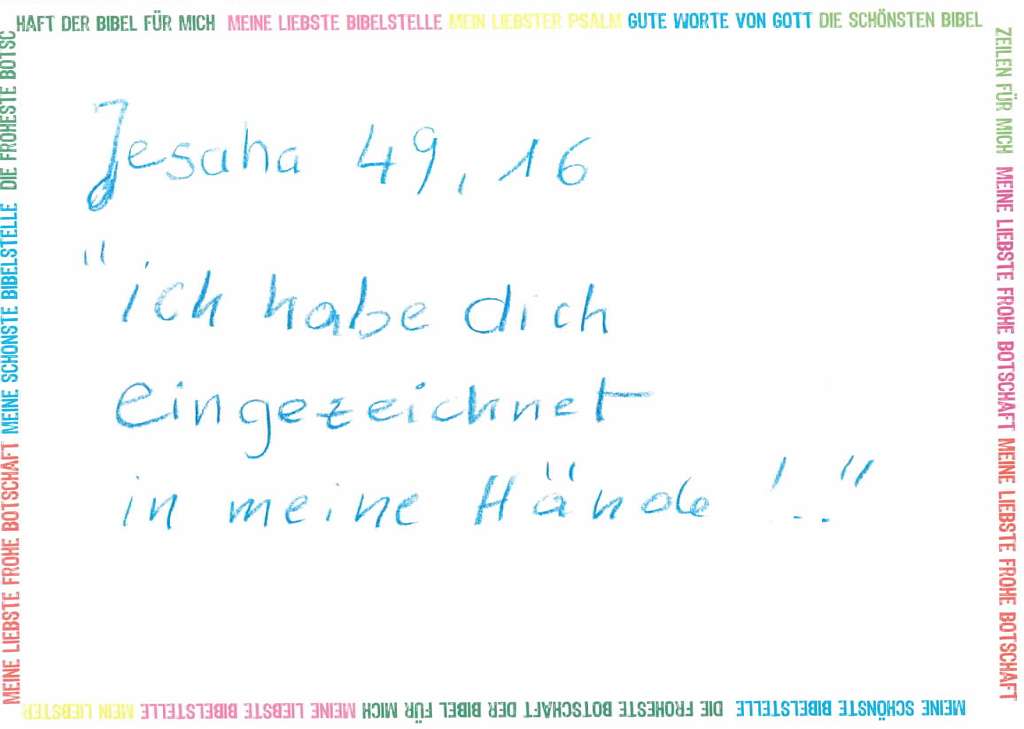 HAFT DER BIBEL FÜR MICH MEINE LIEBSTE BIBELSTELLE MEIN LIEBSTER PSALM GUTE WORTE VON GOTT DIE SCHÖNSTEN BIBEL
ZEILEN FÜR MICH MEINE LIEBSTE FROHE BOTSCHAFT MEINE LIEBSTE FROHE BOTSCHAFT
Jesaha 49, 16
"ich habe dich
eingezeichnet
in meine Hände!.."
MEINE SCHÖNSTE BIBELSTELLE DIE FROHESTE BOTSCHAFT DER BIBEL FÜR MICH MEINE LIEBSTE BIBELSTELLE MEIN LIEBSTER
MEINE LIEBSTE FROHE BOTSCHAFT MEINE SCHÖNSTE BIBELSTELLE DIE FROHESTE BOTSC